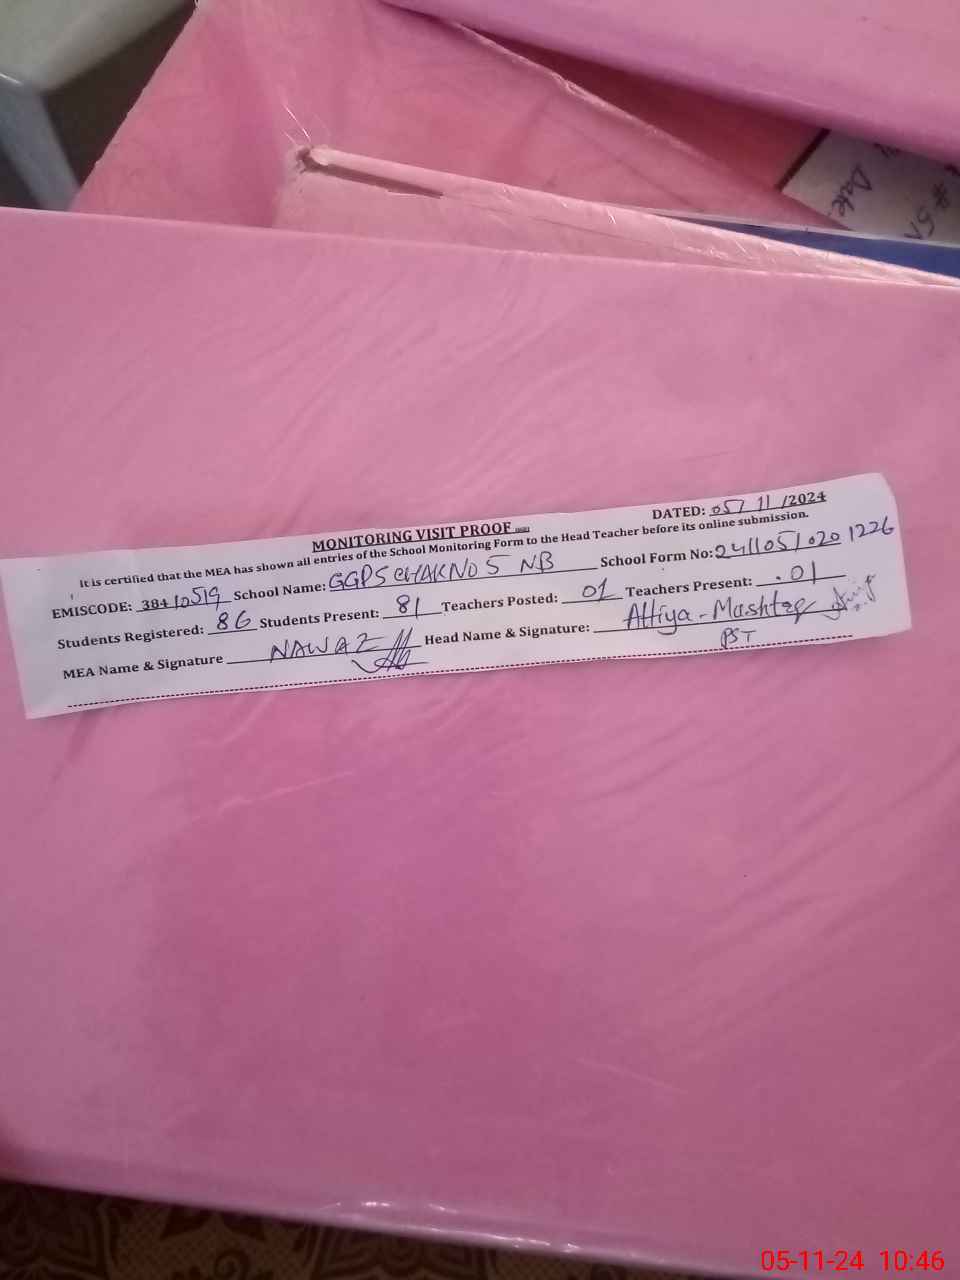 # 5N
Date
MONITORING VISIT PROOF
DATED: 05/ 11 /2024
It is certified that the MEA has shown all entries of the School Monitoring Form to the Head Teacher before its online submission.
EMISCODE: 38410519 School Name: GGPS CHAK NO 5 NB School Form No: 2411051020 1226
Students Registered: 86 Students Present: 81 Teachers Posted: 01 Teachers Present: .01
MEA Name & Signature NAWAZ Head Name & Signature: Attiya-Mashtaq
PST
05-11-24 10:46